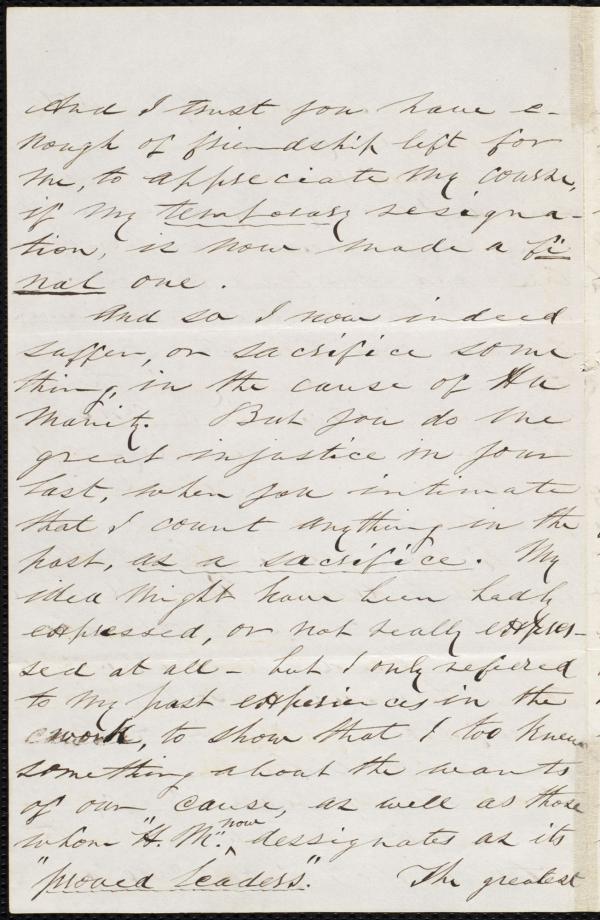 And I trust you have e-
nough of friendship left for
me, to appreciate my course,
if my temporary resigna-
tion, is now made a fi
nal one.
And so I now indeed
suffer, or sacrifice some
thing, in the cause of Hu
manity. But you do me
great injustice in your
last, when you intimate
that I count anything in the
past, as a sacrifice. My
idea might have been badly
expressed, or not really expres-
sed at all - but I only refered
to my past experiences in the
work, to show that I too knew
something about the wants
of our cause, as well as those
whom "H. M." now dessignates as its
"proved Leaders". The greatest